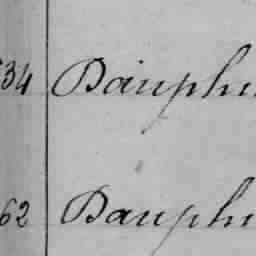 34 Dauphi
62 Dauphi